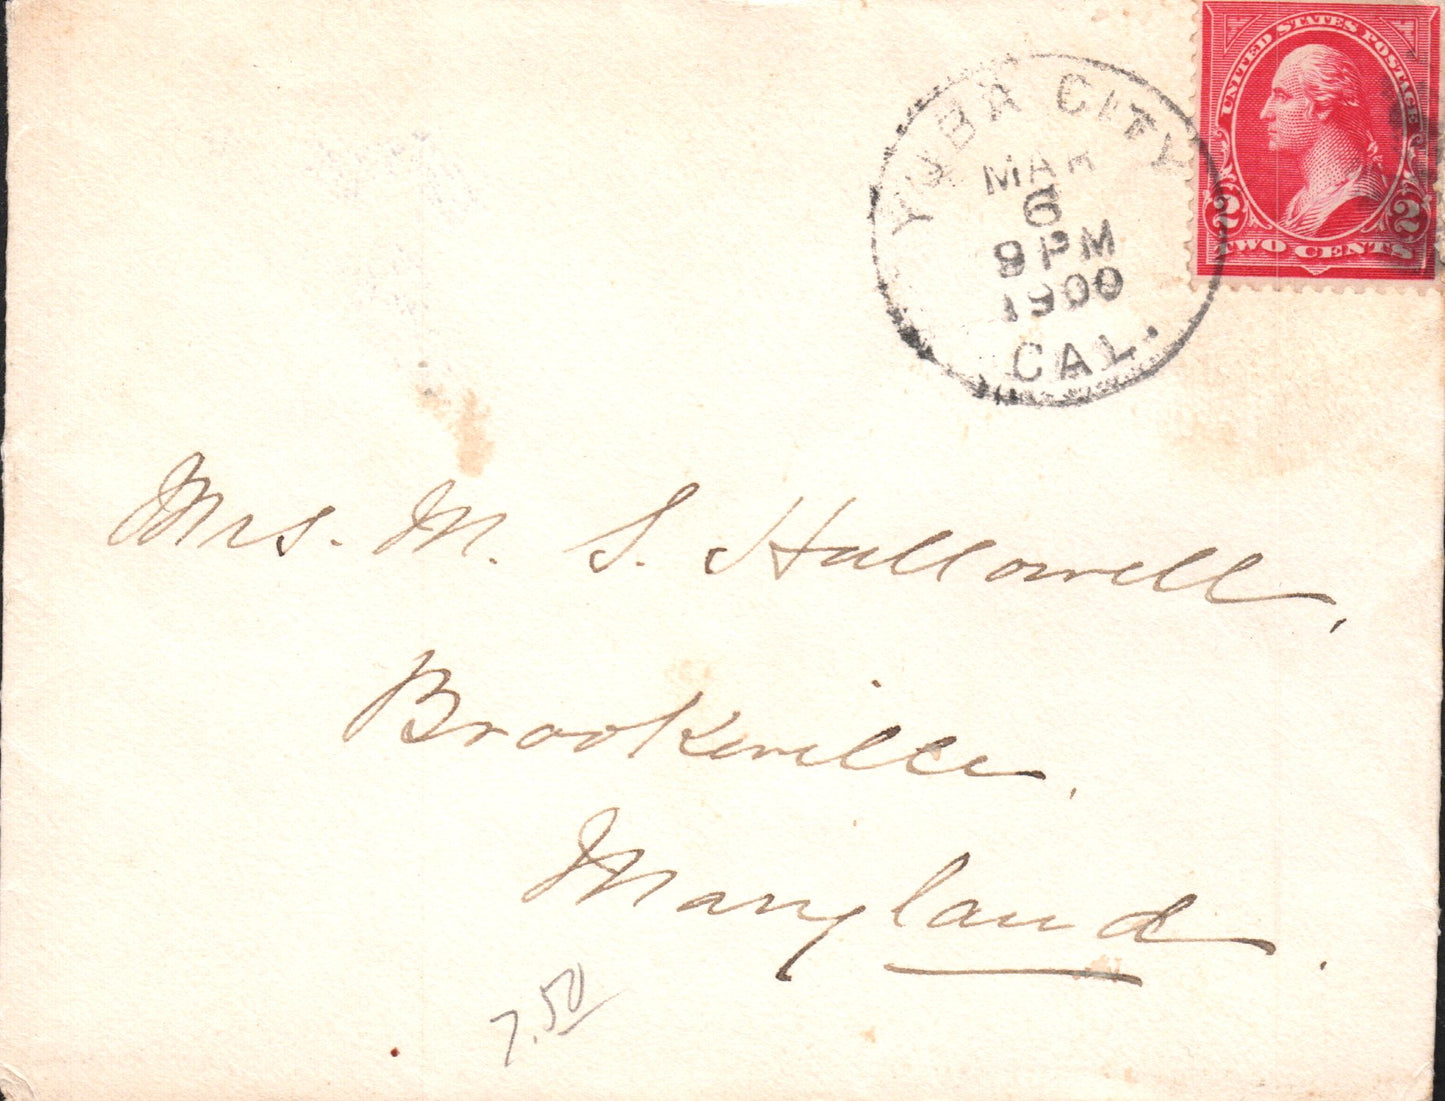 UNITED STATES POSTAGE
2 2
TWO CENTS
YUBA CITY
MAR
6
9 PM
1900
CAL.
Mrs. M. S. Hallowell,
Brookeville,
Maryland.
7.50